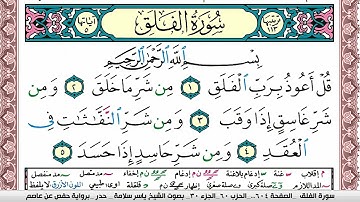 سُورَةُ الْفَلَقِ
بِسْمِ اللَّهِ الرَّحْمَٰنِ الرَّحِيمِ
قُلْ أَعُوذُ بِرَبِّ الْفَلَقِ ١ مِن شَرِّ مَا خَلَقَ ٢ وَمِن
شَرِّ غَاسِقٍ إِذَا وَقَبَ ٣ وَمِن شَرِّ النَّفَّاثَاتِ فِي
الْعُقَدِ ٤ وَمِن شَرِّ حَاسِدٍ إِذَا حَسَدَ ٥
سورة الفلق الصفحة ٦٠٤ الحزب ٦٠ الجزء ٣٠ بصوت الشيخ ياسر سلامة حدر برواية حفص عن عاصم